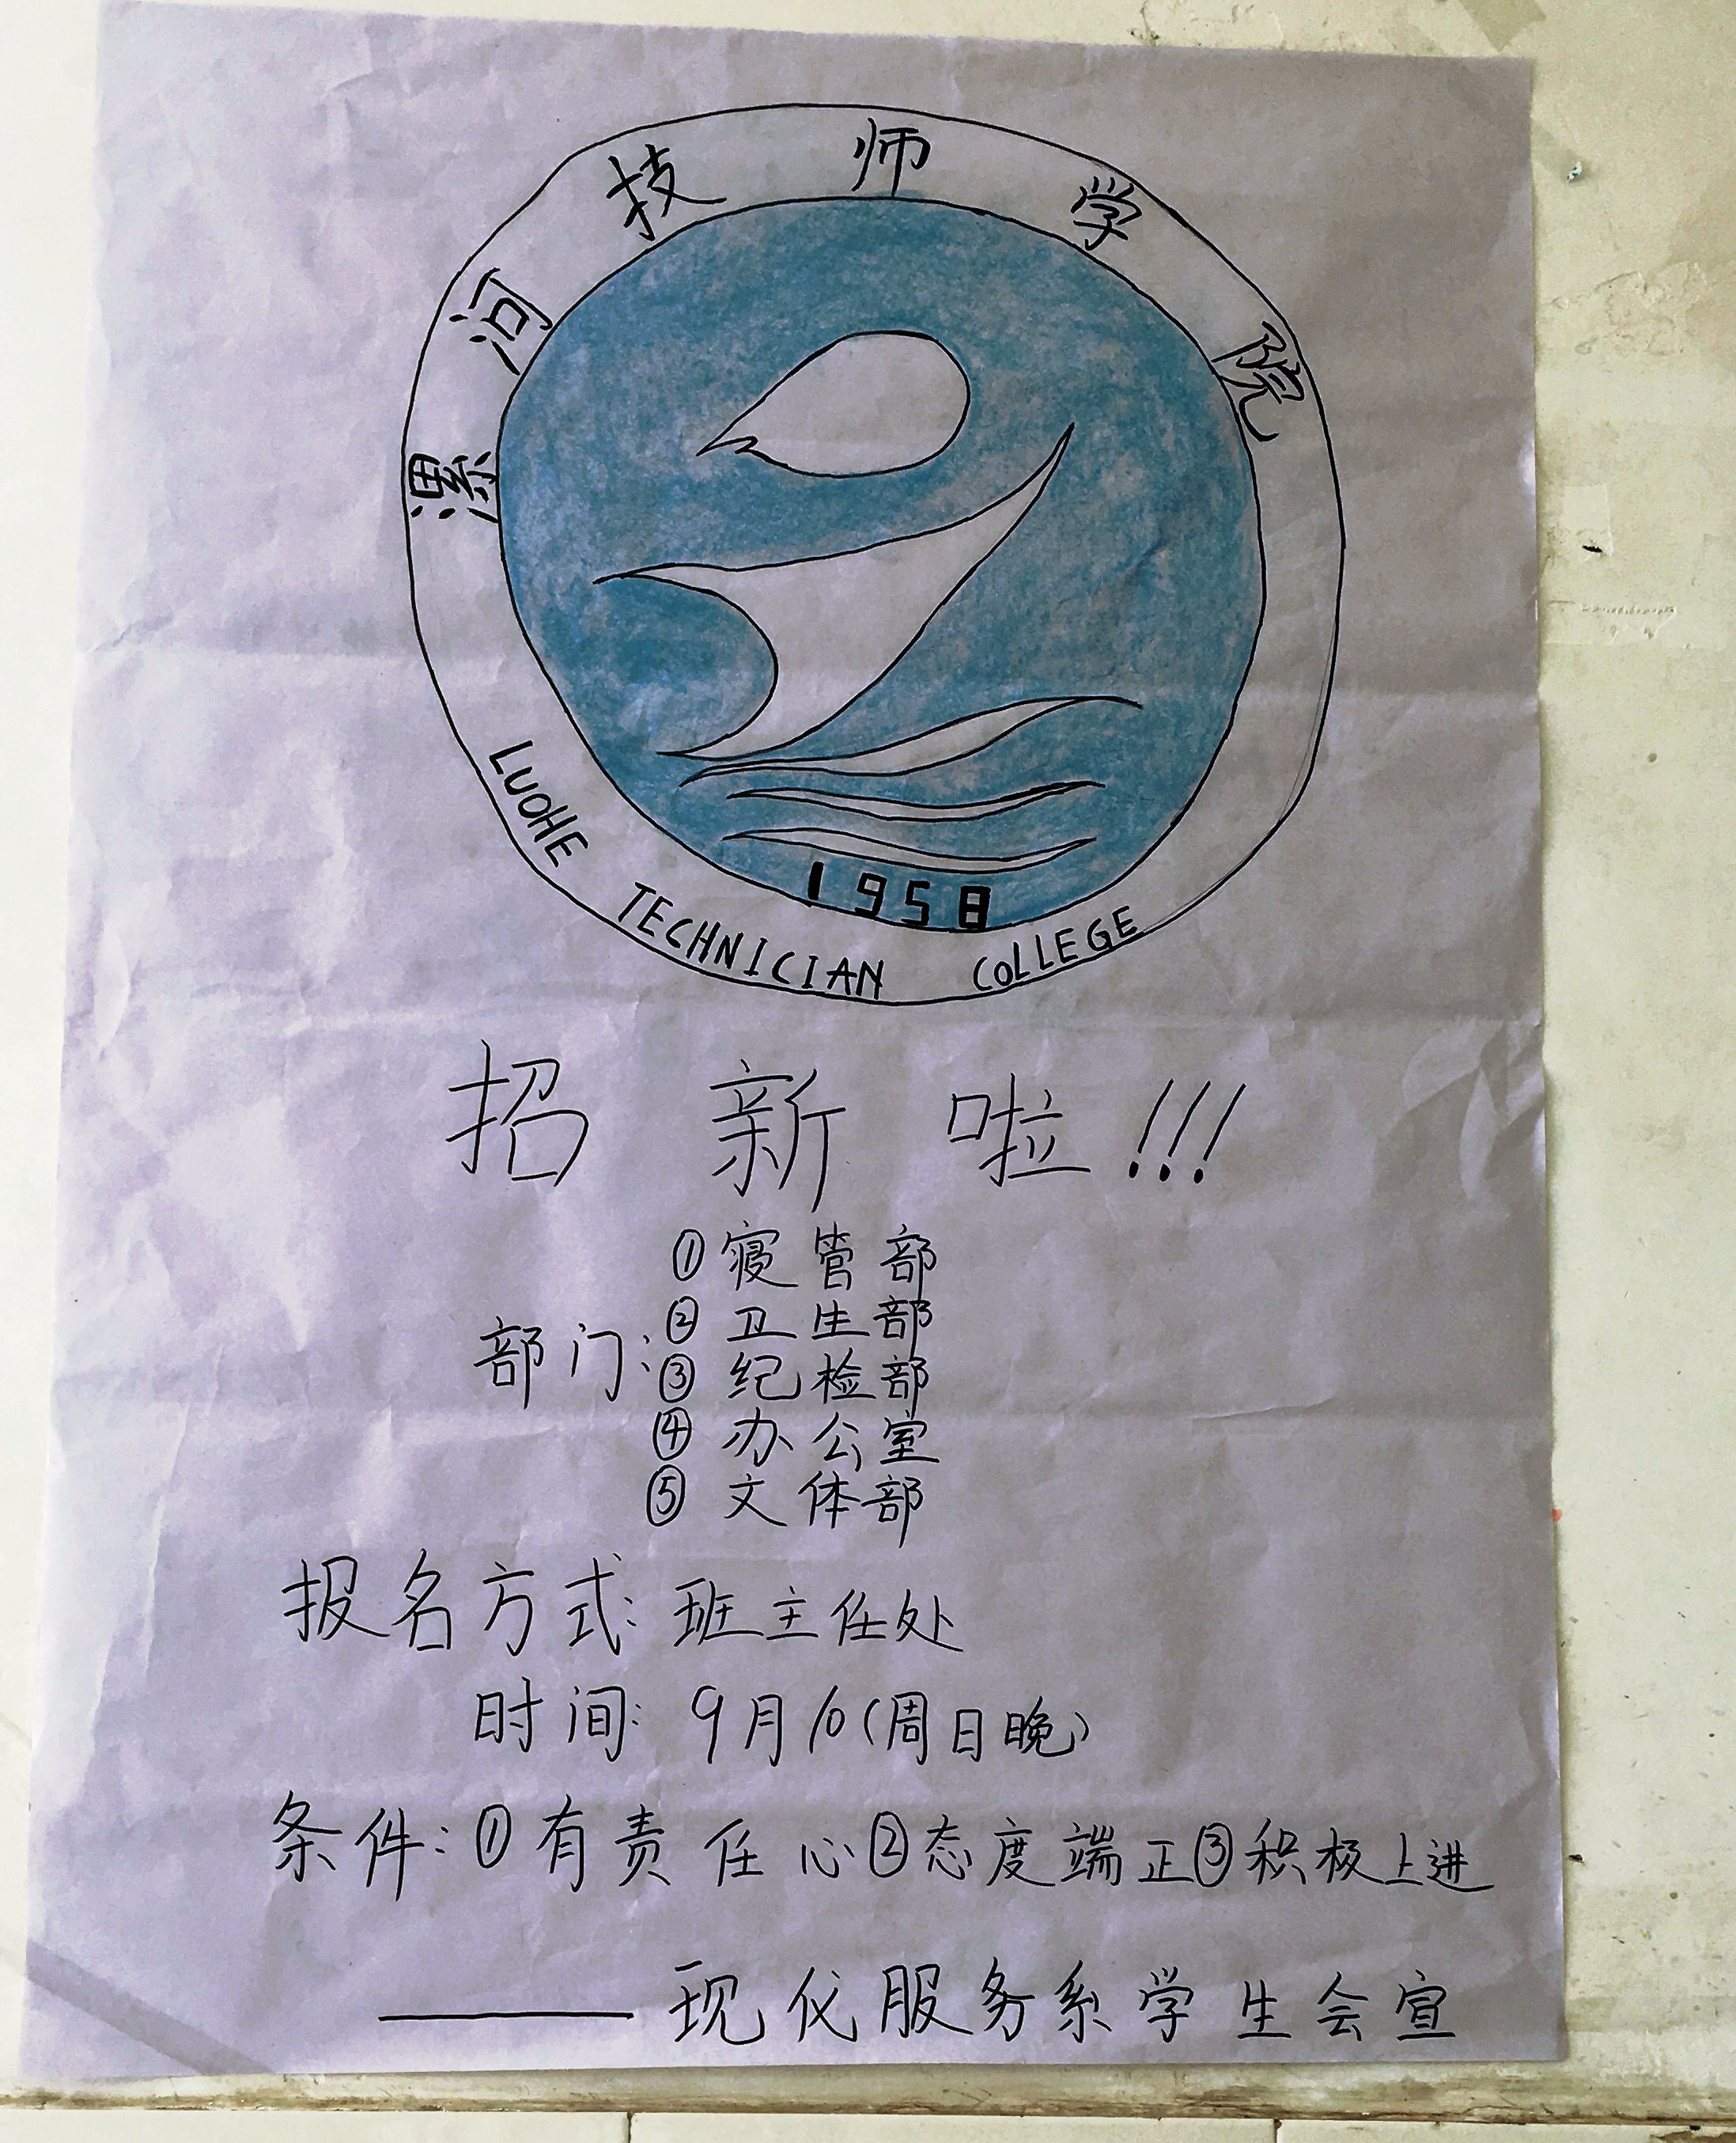 漯河技师学院
1958
LUOHE TECHNICIAN COLLEGE
招新啦!!!
部门:
①寝管部
②卫生部
③纪检部
④办公室
⑤文体部
报名方式:班主任处
时间:9月10(周日晚)
条件:①有责任心②态度端正③积极上进
——现代服务系学生会宣